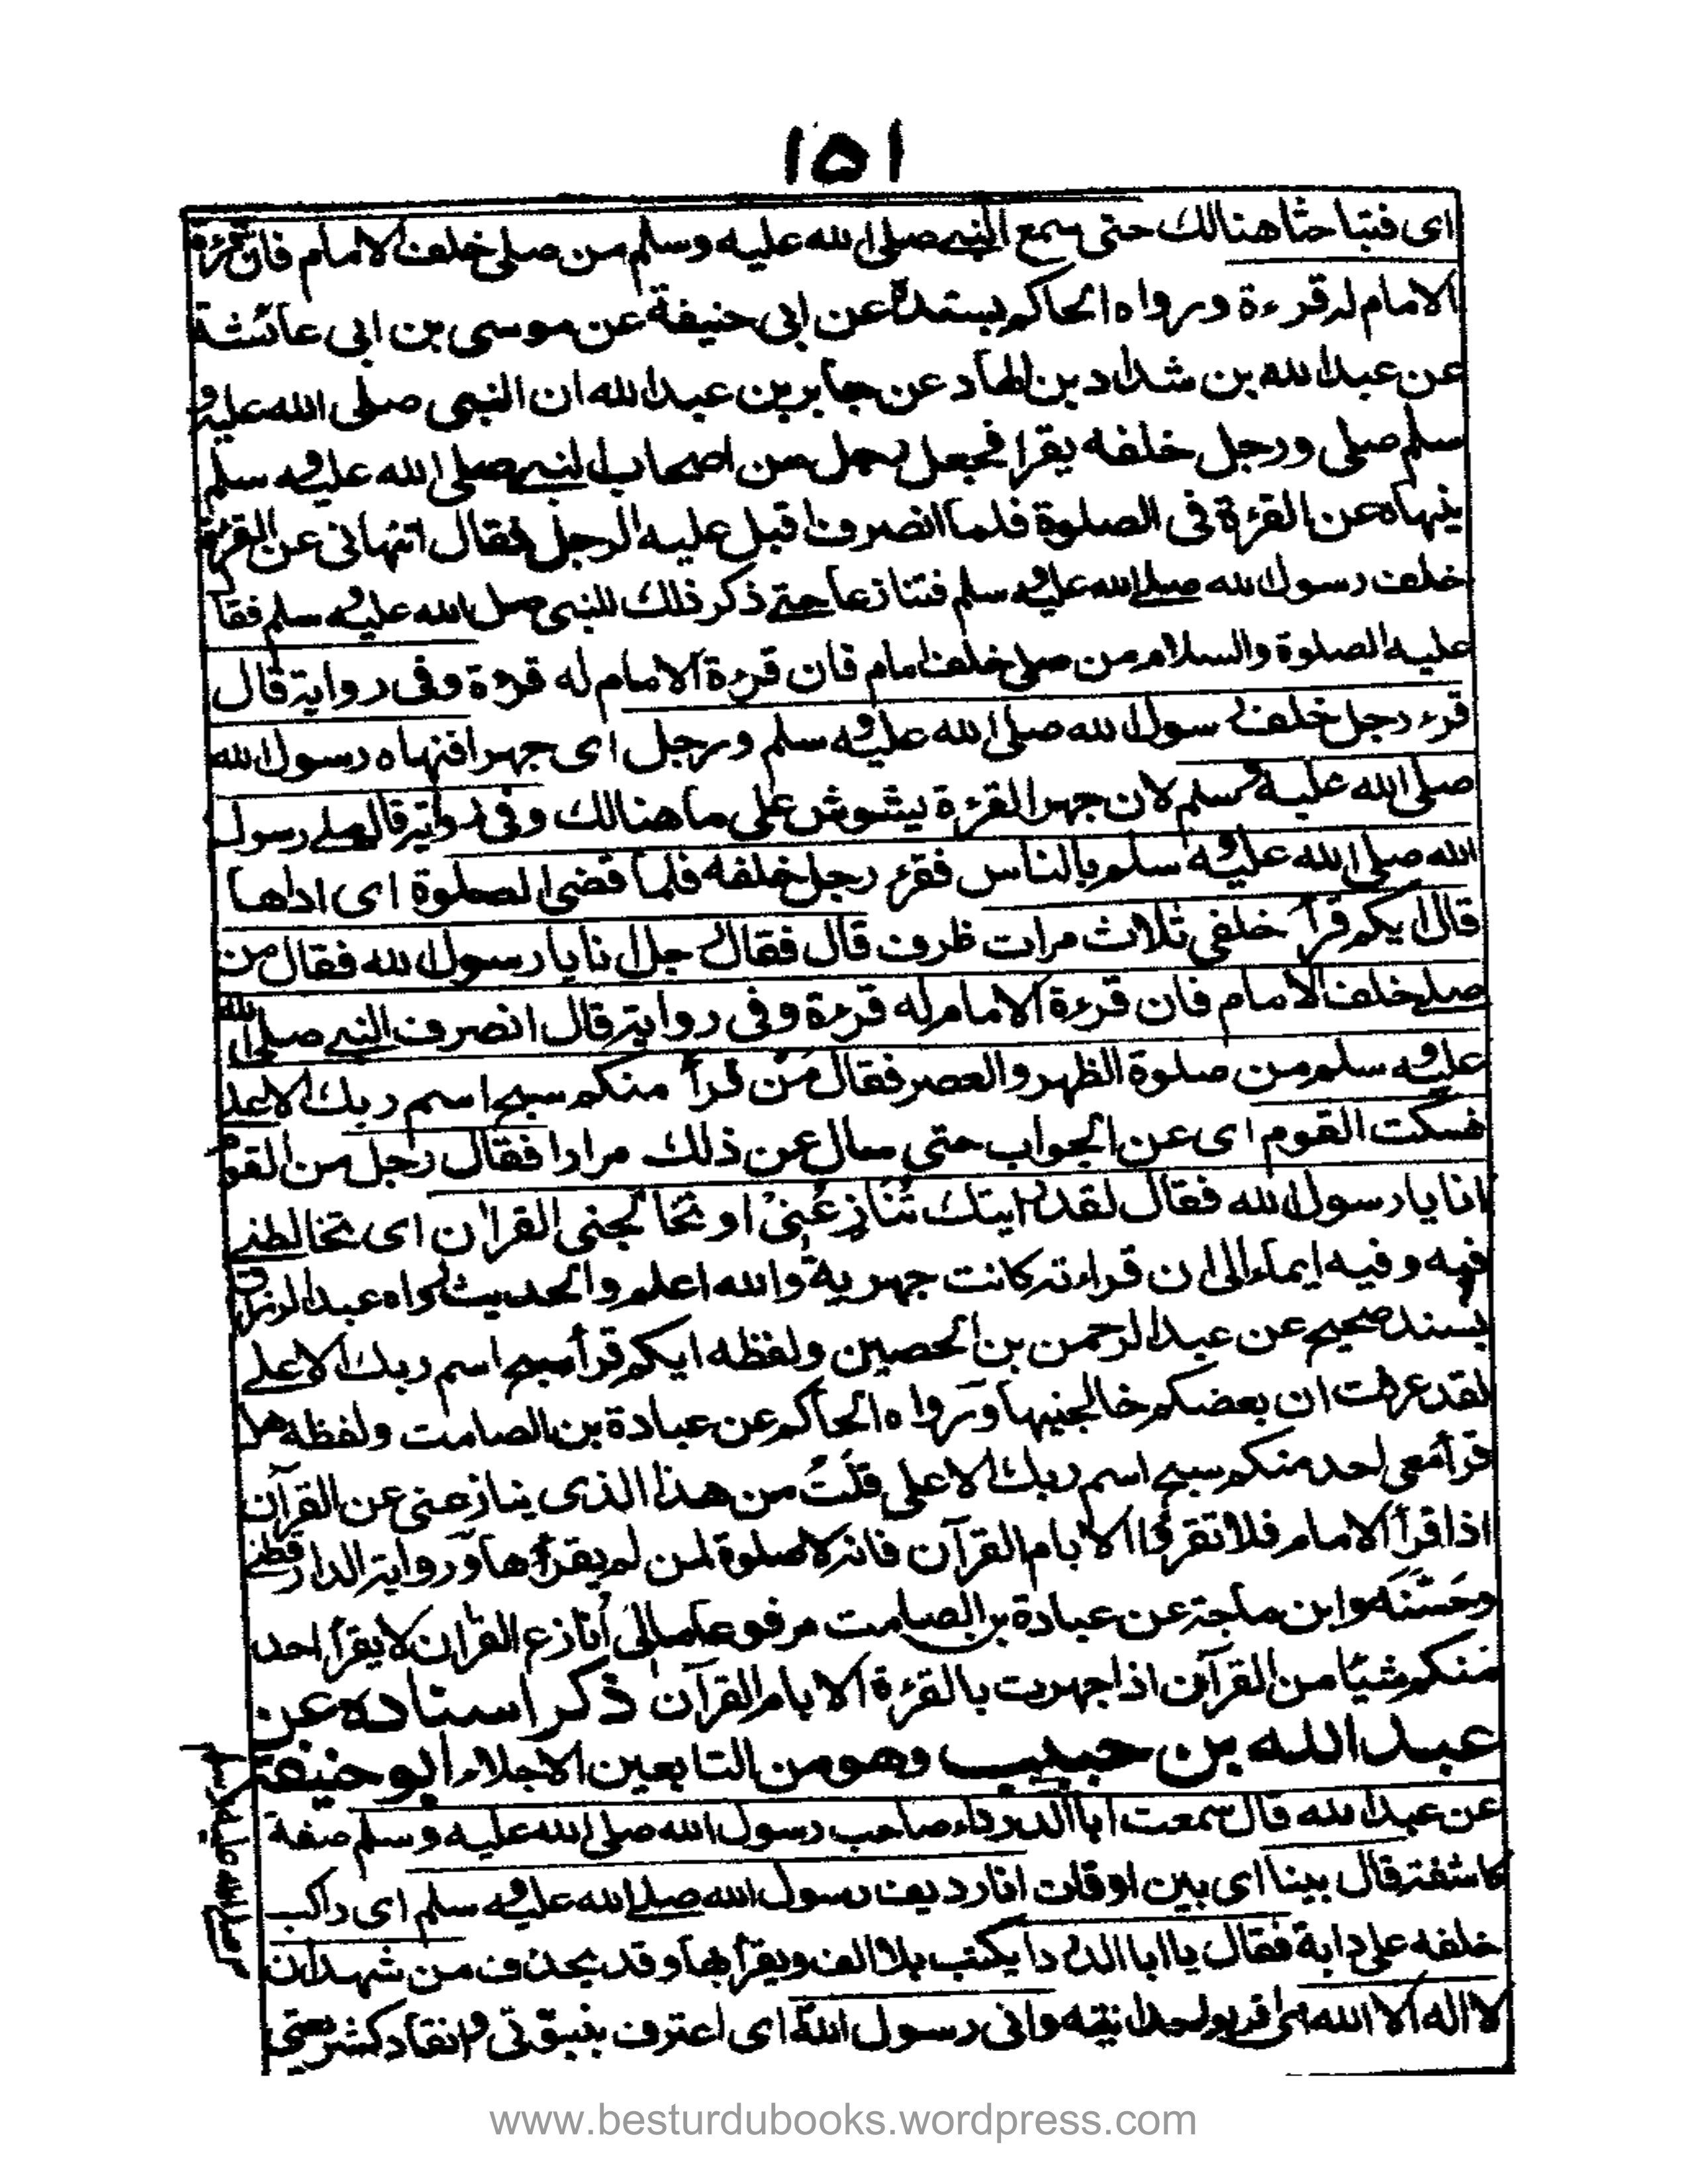 ١٥١
اى فتباحثا هنالك حتى سمع النبے صلى الله عليه وسلم من صلى خلف الامام فان قرءة
الامام له قرءة ورواه الحاكم بسنده عن ابى حنيفة عن موسى بن ابى عائشة
عن عبد الله بن شداد بن الهاد عن جابر بن عبد الله ان النبى صلى الله عليه و
سلم صلى ورجل خلفه يقرا فجعل رجل من اصحاب النبے صلى الله عليه وسلم
ينهاه عن القرءة فى الصلوة فلما انصرف اقبل عليه الرجل فقال اتنهانى عن القرءة
خلف رسول الله صلے الله عليه وسلم فتنازعا حتے ذكر ذلك للنبى صلى الله عليه وسلم فقا
عليه الصلوة والسلام من صلى خلف امام فان قرءة الامام له قرءة وفى رواية قال
قرء رجل خلف رسول الله صلى الله عليه وسلم ورجل اى جهرا فنهاه رسول الله
صلى الله عليه وسلم لان جهر القرءة يشوش على ما هنالك وفى رواية قال صلے رسول
الله صلى الله عليه وسلم بالناس فقرء رجل خلفه فلما قضى الصلوة اى اداها
قال ايكم قرأ خلفى ثلاث مرات ظرف قال فقال رجل انا يا رسول الله فقال من
صلے خلف الامام فان قرءة الامام له قرءة وفى رواية قال انصرف النبے صلى الله
عليه وسلم من صلوة الظهر والعصر فقال مَنْ قرأ منكم سبح اسم ربك الاعلے
فسكت القوم اى عن الجواب حتى سال عن ذلك مرارا فقال رجل من القوم
انا يا رسول الله فقال لقد رايتك تُنَازِعُنِىْ او تخالجنى القرآن اى تخالطنے
فيه وفيه ايماء الى ان قراءته كانت جهرية والله اعلم والحديث رواه عبد الرزاق
بسند صحيح عن عبد الرحمن بن الحصين ولفظه ايكم قرأ سبح اسم ربك الاعلے
لقد عرفت ان بعضكم خالجنيها ورواه الحاكم عن عبادة بن الصامت ولفظه هل
قرأ معى احد منكم سبح اسم ربك الاعلى قلت من هذا الذى ينازعنى عن القرآن
اذا قرأ الامام فلا تقرؤا الا بام القرآن فانه لا صلوة لمن لم يقرأ بها ورواية الدار قطنے
وحَسَّنَه وابن ماجة عن عبادة بن الصامت مرفوعا مالى أنازع القرآن لا يقرأ احد
منكم شيئا من القرآن اذا جهرت بالقرءة الا بام القرآن ذكر اسناده عن
عبد الله بن حبيب وهو من التابعين الاجلاء ابو حنيفة
عن عبد الله قال سمعت ابا الدرداء صاحب رسول الله صلى الله عليه وسلم صفة
كاشفة قال بينا اى بين اوقات انا رديف رسول الله صلے الله عليه وسلم اى راكب
خلفه على دابة فقال يا ابا الدرداء يكتب بلا الف ويقرأ بها وقد يحذف من شهد ان
لا اله الا الله اى اقر بوحدانيته وانى رسول الله اى اعترف بنبوّتى وانقاد لشريعتى
www.besturdubooks.wordpress.com